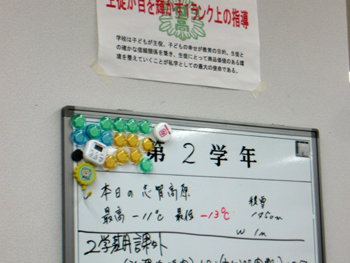 生徒が目を輝かすランク上の指導
学校は子どもが主役。子どもの幸せが教育の目的。生徒と
の確かな信頼関係を築き、生徒にとって
を整えていくことが私学としての最大の使命である。
第2学年
本日の志賀高原
最高 -11℃ 最低 -13℃ 積雪 190cm
W 1m
2学期課外